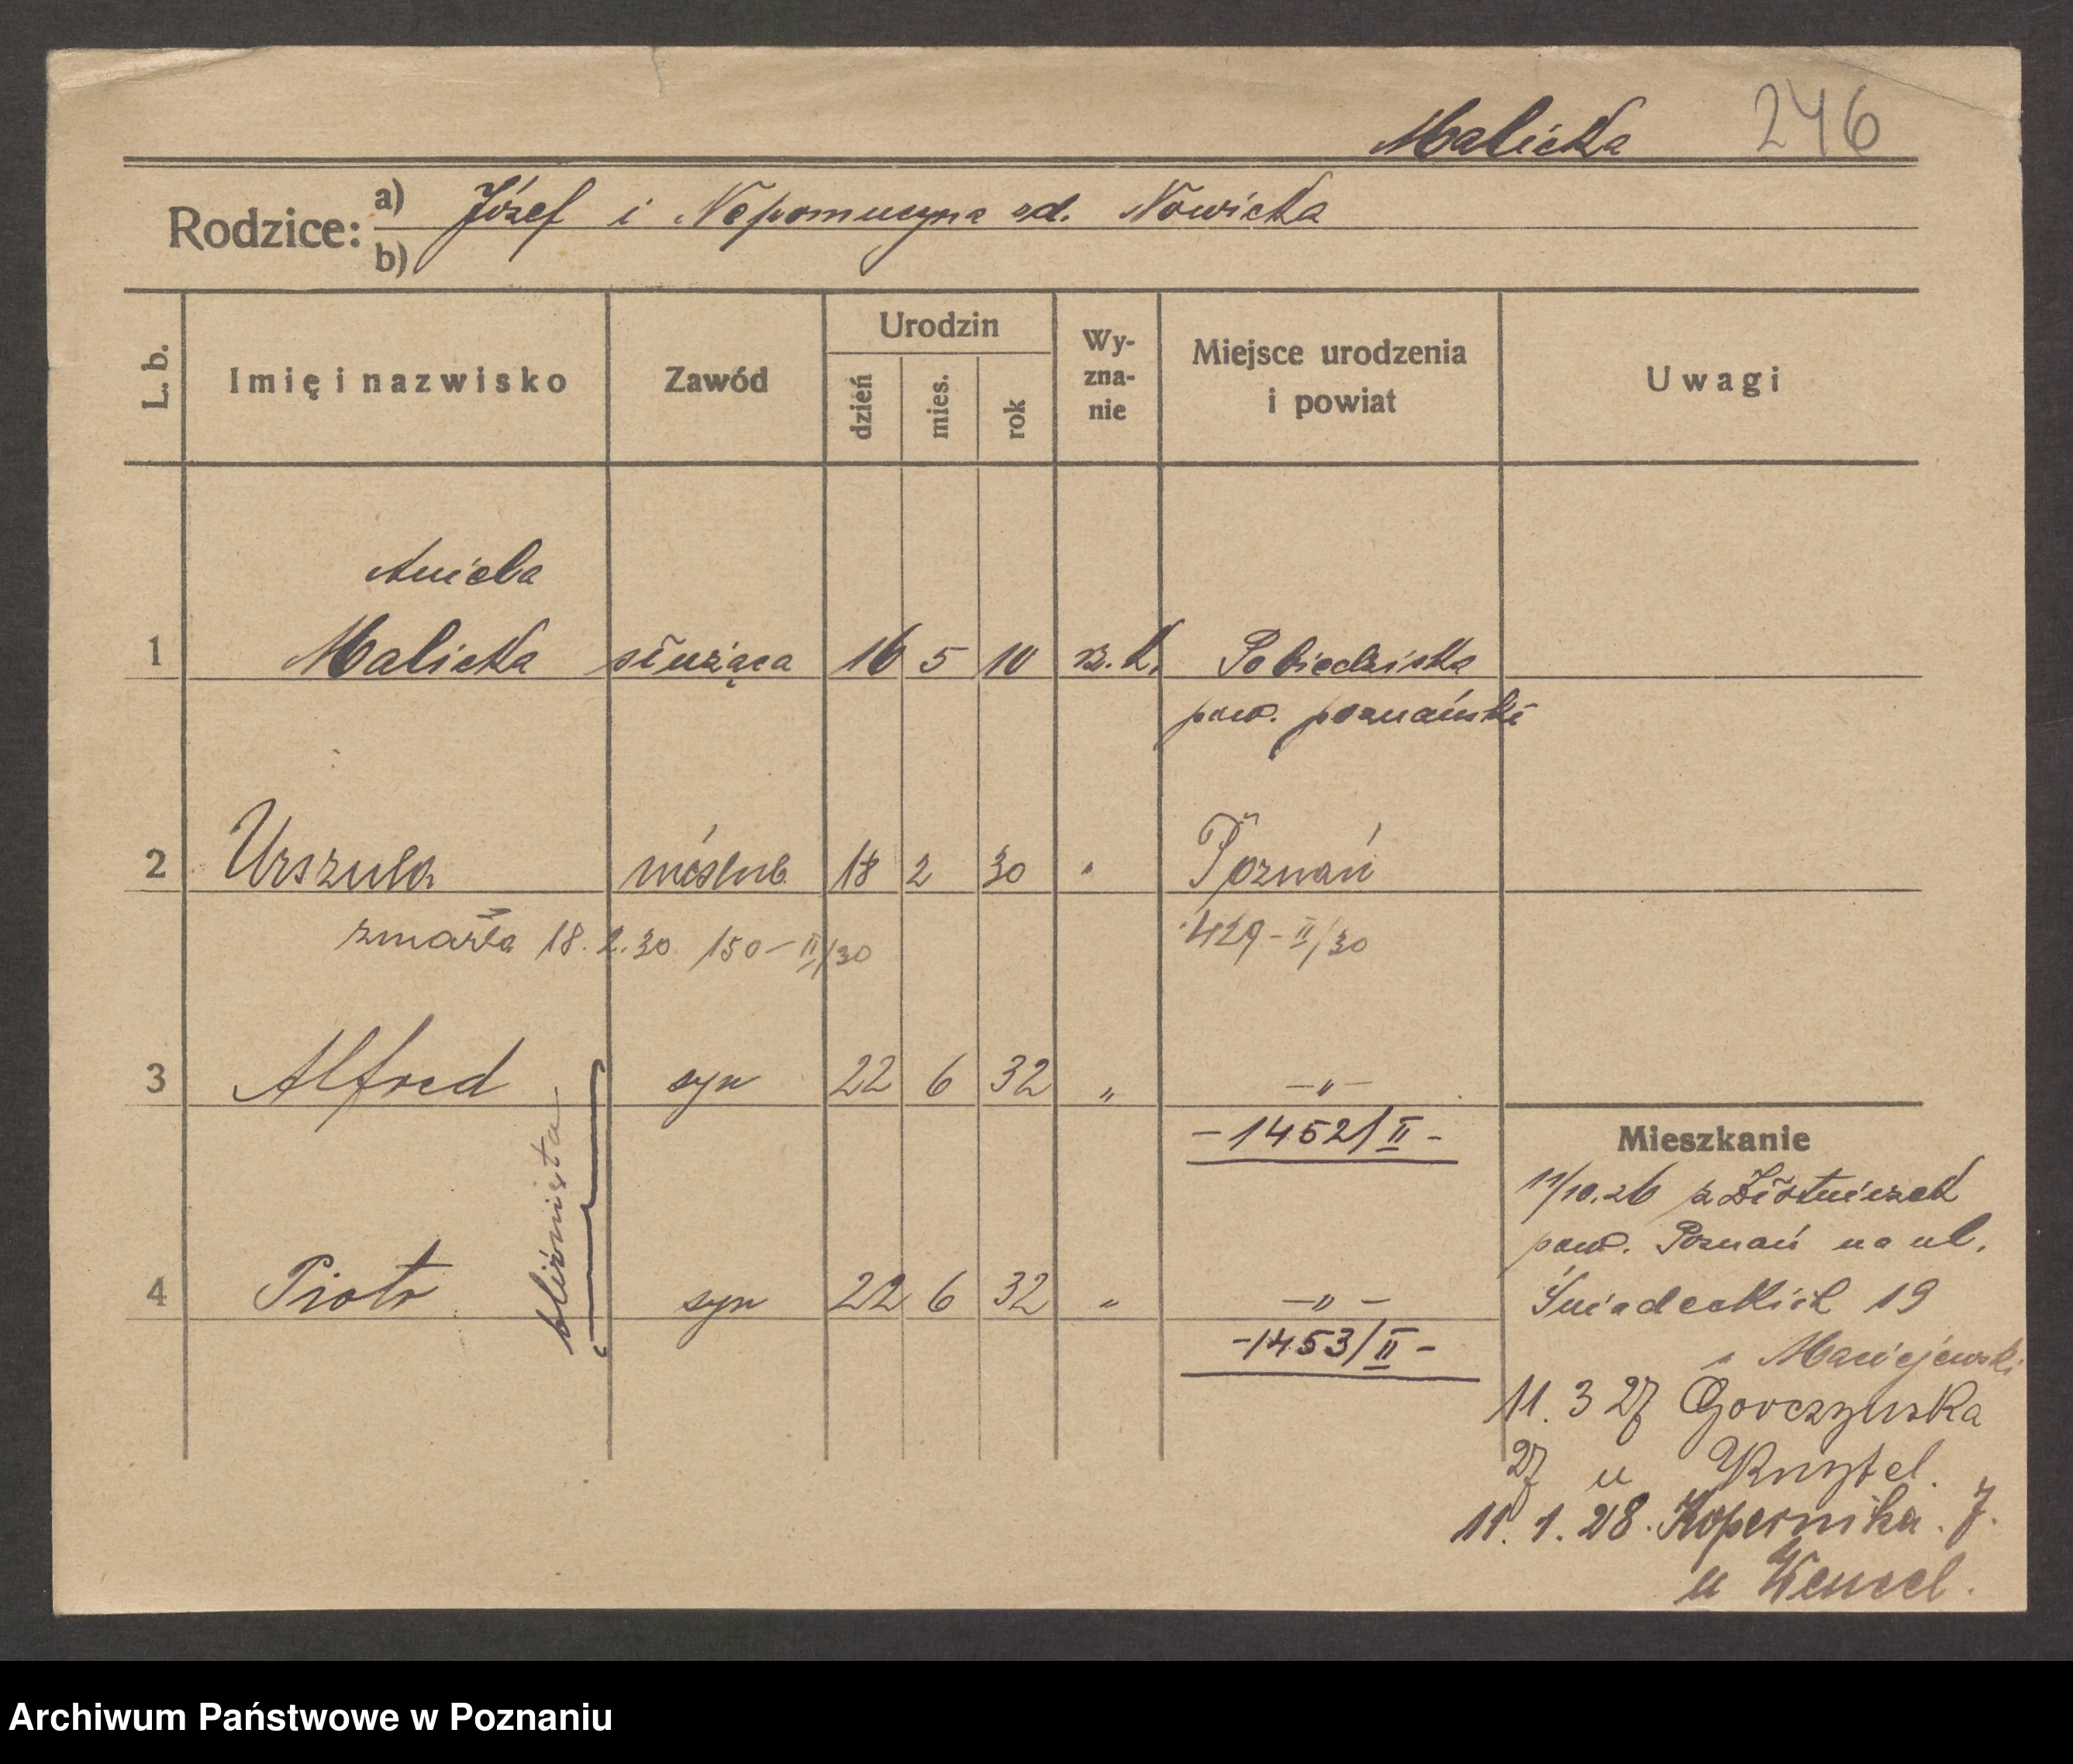 Malicka 246
Rodzice: a) Józef i Nepomucyna zd. Nowicka
b)
L. b. Imię i nazwisko Zawód Urodzin dzień mies. rok Wy-zna-nie Miejsce urodzenia i powiat Uwagi
Aniela
1 Malicka służąca 16 5 10 rz. k. Pobiedziska
pow. poznański
2 Urszula nieślub. 18 2 30 " Poznań
zmarła 18.2.30 150-II/30 429-II/30
3 Alfred syn 22 6 32 " -"-
-1452/II-
bliźnięta
4 Piotr syn 22 6 32 " -"-
-1453/II-
Mieszkanie
11/10.26 z Złotniczek
pow. Poznań na ul.
Śniadeckich 19
Maciejewski
11.3 27 Gorczyńska
27 u
11.1.28. Kopernika. 7.
u Wencel.
Archiwum Państwowe w Poznaniu